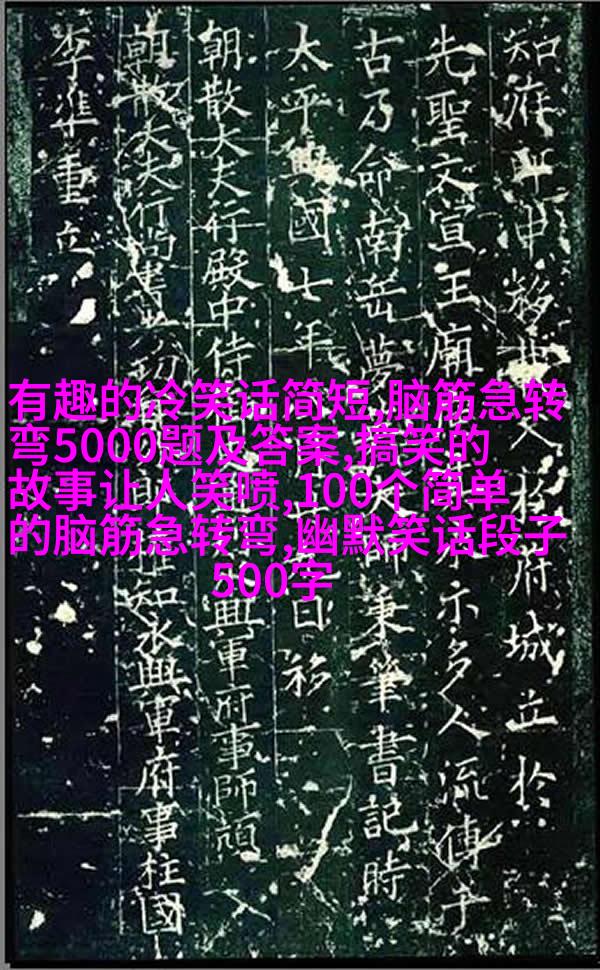 知
移
府城立於
先聖文宣王廟
示多人流傳于
古乃命南岳夢
師秉筆書記時
太平興國七年
日移
朝散大夫行殿中侍
興軍府事師頏
朝散大夫行尚書
知永興軍府事柱國
李準重立
有趣的冷笑话简短,脑筋急转
弯5000题及答案,搞笑的
故事让人笑喷,100个简单
的脑筋急转弯,幽默笑话段子
500字